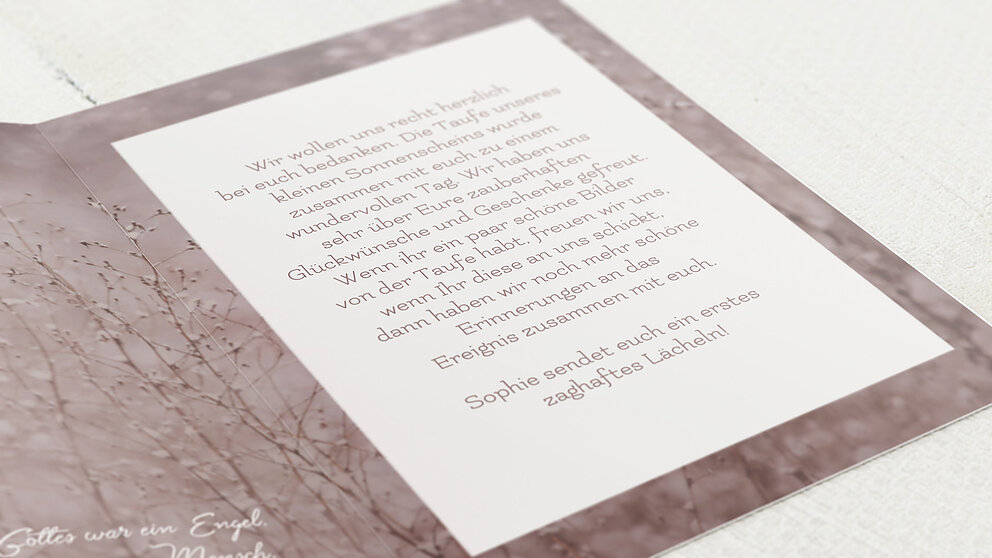 Wir wollen uns recht herzlich
bei euch bedanken. Die Taufe unseres
kleinen Sonnenscheins wurde
zusammen mit euch zu einem
wundervollen Tag. Wir haben uns
sehr über Eure zauberhaften
Glückwünsche und Geschenke gefreut.
Wenn ihr ein paar schöne Bilder
von der Taufe habt, freuen wir uns,
wenn Ihr diese an uns schickt,
dann haben wir noch mehr schöne
Erinnerungen an das
Ereignis zusammen mit euch.
Sophie sendet euch ein erstes
zaghaftes Lächeln!
Gottes war ein Engel.
Mensch.